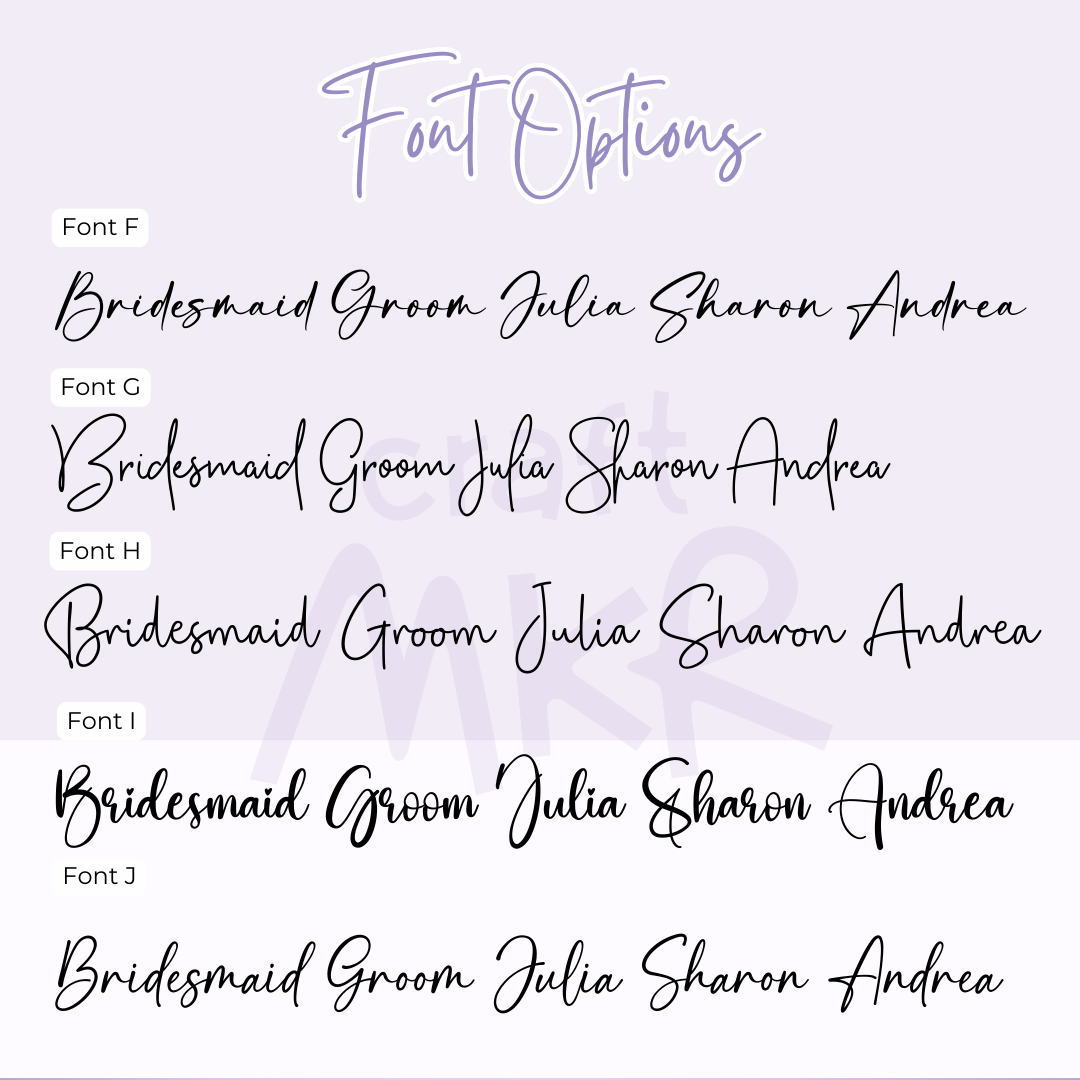 Font Options
Font F
Bridesmaid Groom Julia Sharon Andrea
Font G
Bridesmaid Groom Julia Sharon Andrea
craft
Font H
Bridesmaid Groom Julia Sharon Andrea
MKR
Font I
Bridesmaid Groom Julia Sharon Andrea
Font J
Bridesmaid Groom Julia Sharon Andrea